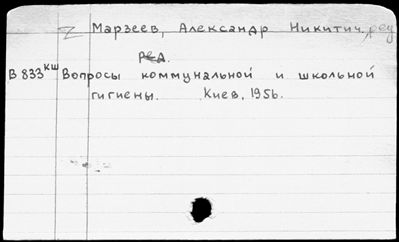 Марзеев, Александр Никитич, ред
Ред.
В 833 КШ Вопросы коммунальной и школьной
гигиены. Киев, 1956.